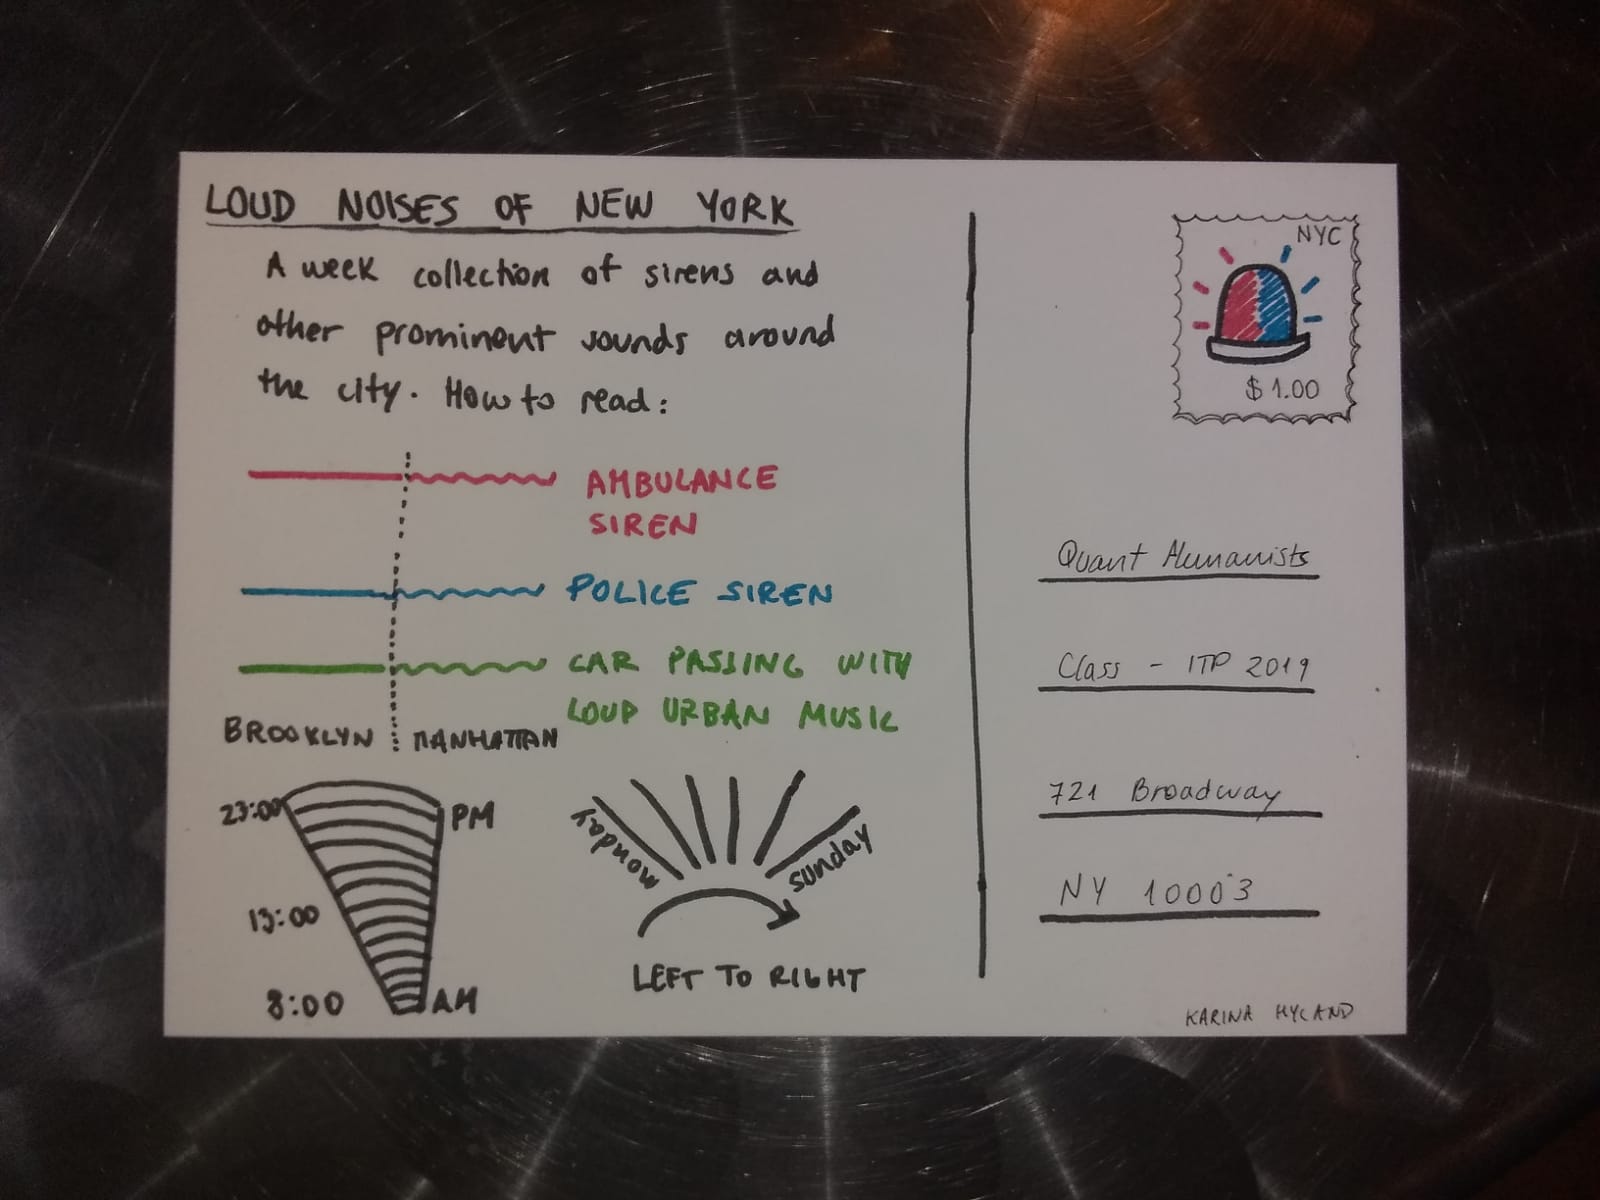 LOUD NOISES OF NEW YORK
A week collection of sirens and
other prominent sounds around
the city. How to read:
AMBULANCE
SIREN
POLICE SIREN
CAR PASSING WITH
LOUD URBAN MUSIC
BROOKLYN
MANHATTAN
23:00
PM
13:00
8:00
AM
monday
sunday
LEFT TO RIGHT
NYC
$1.00
Quant Humanists
Class - ITP 2019
721 Broadway
NY 10003
KARINA HYLAND